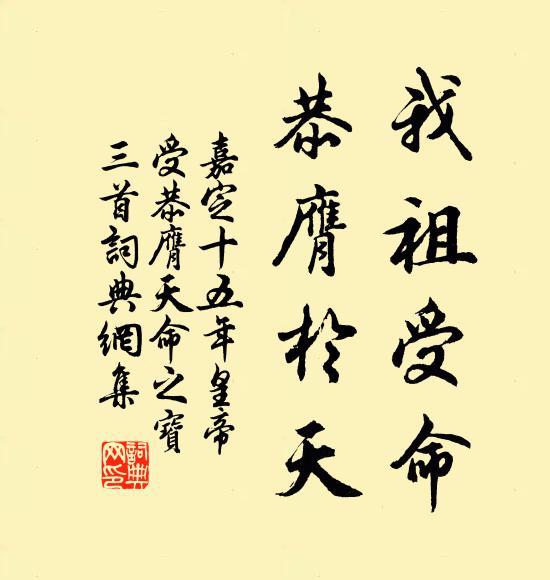 我祖受命
恭膺於天
嘉定十五年皇帝
受恭膺天命之寶
三首詞典網集
詞典
网印